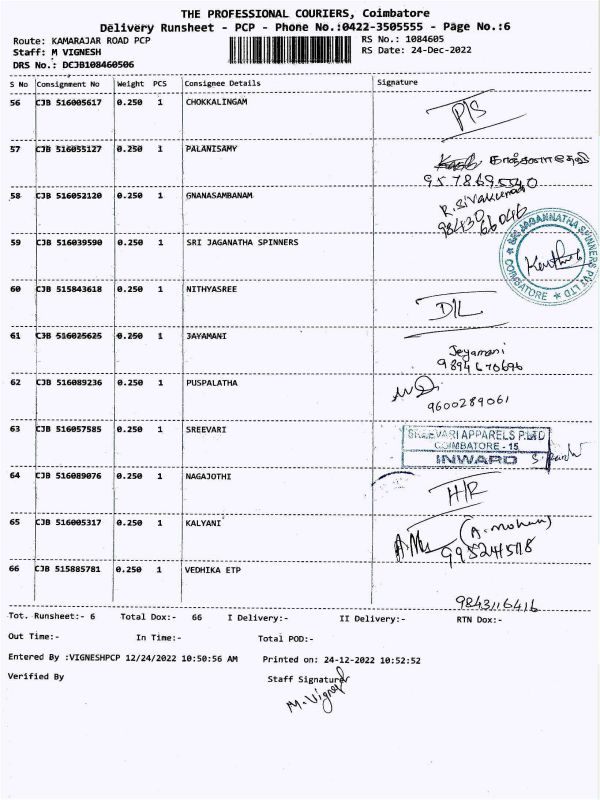 THE PROFESSIONAL COURIERS, Coimbatore
Delivery Runsheet - PCP - Phone No.:0422-3505555 - Page No.:6
Route: KAMARAJAR ROAD PCP RS No.: 1084605
Staff: M VIGNESH RS Date: 24-Dec-2022
DRS No.: DCJB108460506
S No Consignment No Weight PCS Consignee Details Signature
56 CJB 516005617 0.250 1 CHOKKALINGAM P/S
57 CJB 516055127 0.250 1 PALANISAMY
58 CJB 516052120 0.250 1 GNANASAMBANAM R. Sivakumar
98430 66046
59 CJB 516039590 0.250 1 SRI JAGANATHA SPINNERS
SRI JAGANNATHA SPINNERS PVT LTD COIMBATORE
60 CJB 515843618 0.250 1 NITHYASREE D/L
61 CJB 516025625 0.250 1 JAYAMANI Jeyamani
9894670696
62 CJB 516089236 0.250 1 PUSPALATHA
9600289061
63 CJB 516057585 0.250 1 SREEVARI SREEVARI APPARELS P.LTD
COIMBATORE - 15
INWARD
64 CJB 516089076 0.250 1 NAGAJOTHI H/R
65 CJB 516005317 0.250 1 KALYANI (A. mohan)
66 CJB 515885781 0.250 1 VEDHIKA ETP
9843116416
Tot. Runsheet:- 6 Total Dox:- 66 I Delivery:- II Delivery:- RTN Dox:-
Out Time:- In Time:- Total POD:-
Entered By :VIGNESHPCP 12/24/2022 10:50:56 AM Printed on: 24-12-2022 10:52:52
Verified By Staff Signature
M. Vignesh